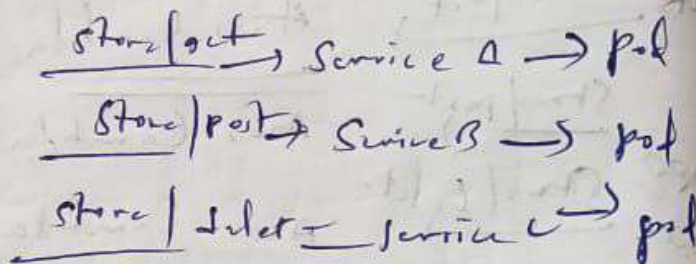 store/get → Service A → pod
store/post → Service B → pod
store/delet - service C → pod